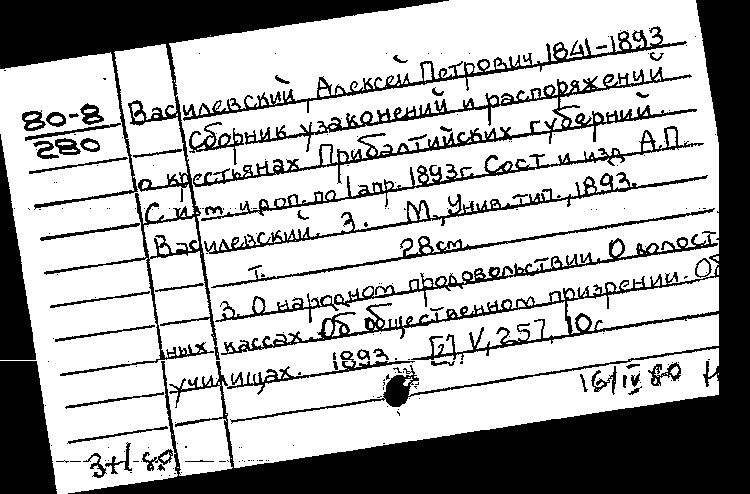 80-8
280
Василевский, Алексей Петрович, 1841-1893
Сборник узаконений и распоряжений
о крестьянах Прибалтийских губерний.
С изм. и доп. по 1 апр. 1893г. Сост. и изд. А.П.
Василевский. 3. М., Унив. тип., 1893.
т. 28см.
3. О народном продовольствии. О волост-
ных кассах. Об общественном призрении. Об
училищах. 1893. [2], V, 257, 10с
16/IV 80
3+1 80